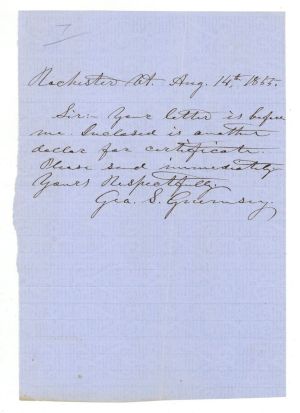 Rochester Vt. Aug. 14th 1865.
Sir:- Your letter is before
me. Inclosed is another
dollar for certificate.
Please send immediately.
Yours Respectfully.
Geo. S. Guernsey.